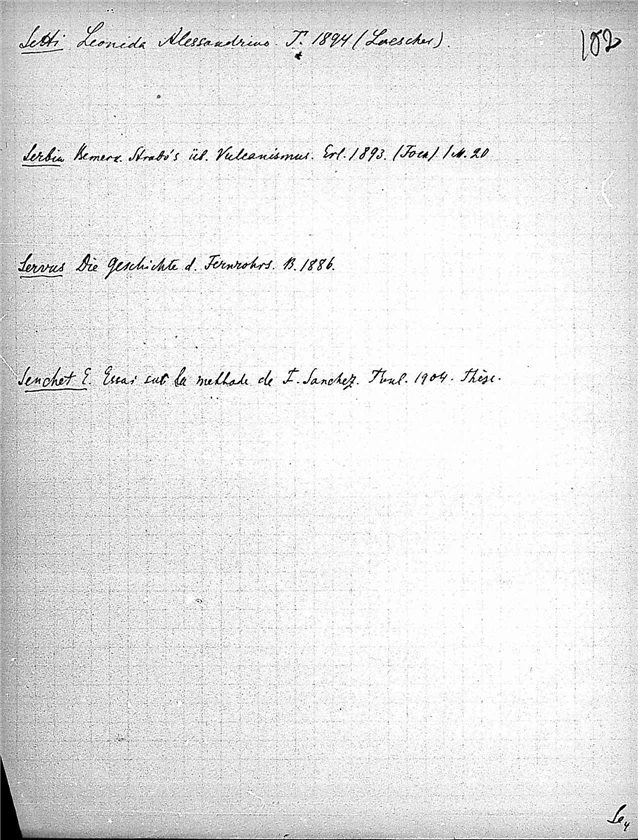 Setti Leonida Alessandrino. T. 1894 (Loescher).
102
Serbin Bemerk. Strabo's üb. Vulcanismus. Erl. 1893. (Fock) 1 M. 20
Servus Die Geschichte d. Fernrohrs. B. 1886.
Senchet E. Essai sur la methode de F. Sanchez. Toul. 1904. Thèse.
Se4